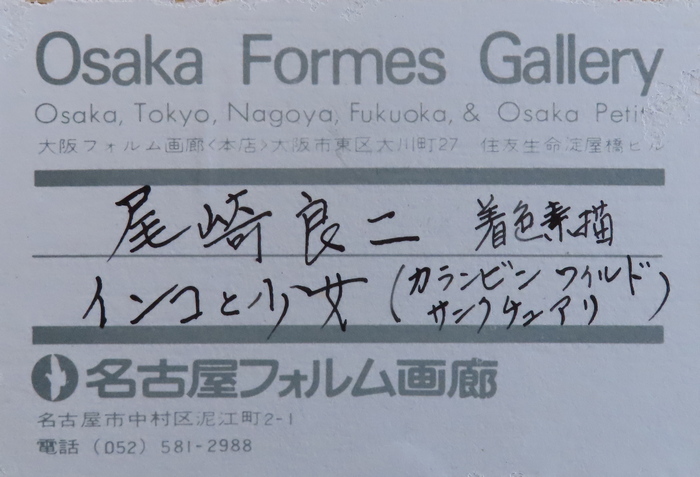 Osaka Formes Gallery
Osaka, Tokyo, Nagoya, Fukuoka, & Osaka Petit
大阪フォルム画廊<本店>大阪市東区大川町27 住友生命淀屋橋ビル
尾崎良二 着色素描
インコと少女(カランビン ワイルド
サンクチュアリ)
名古屋フォルム画廊
名古屋市中村区泥江町2-1
電話 (052) 581-2988